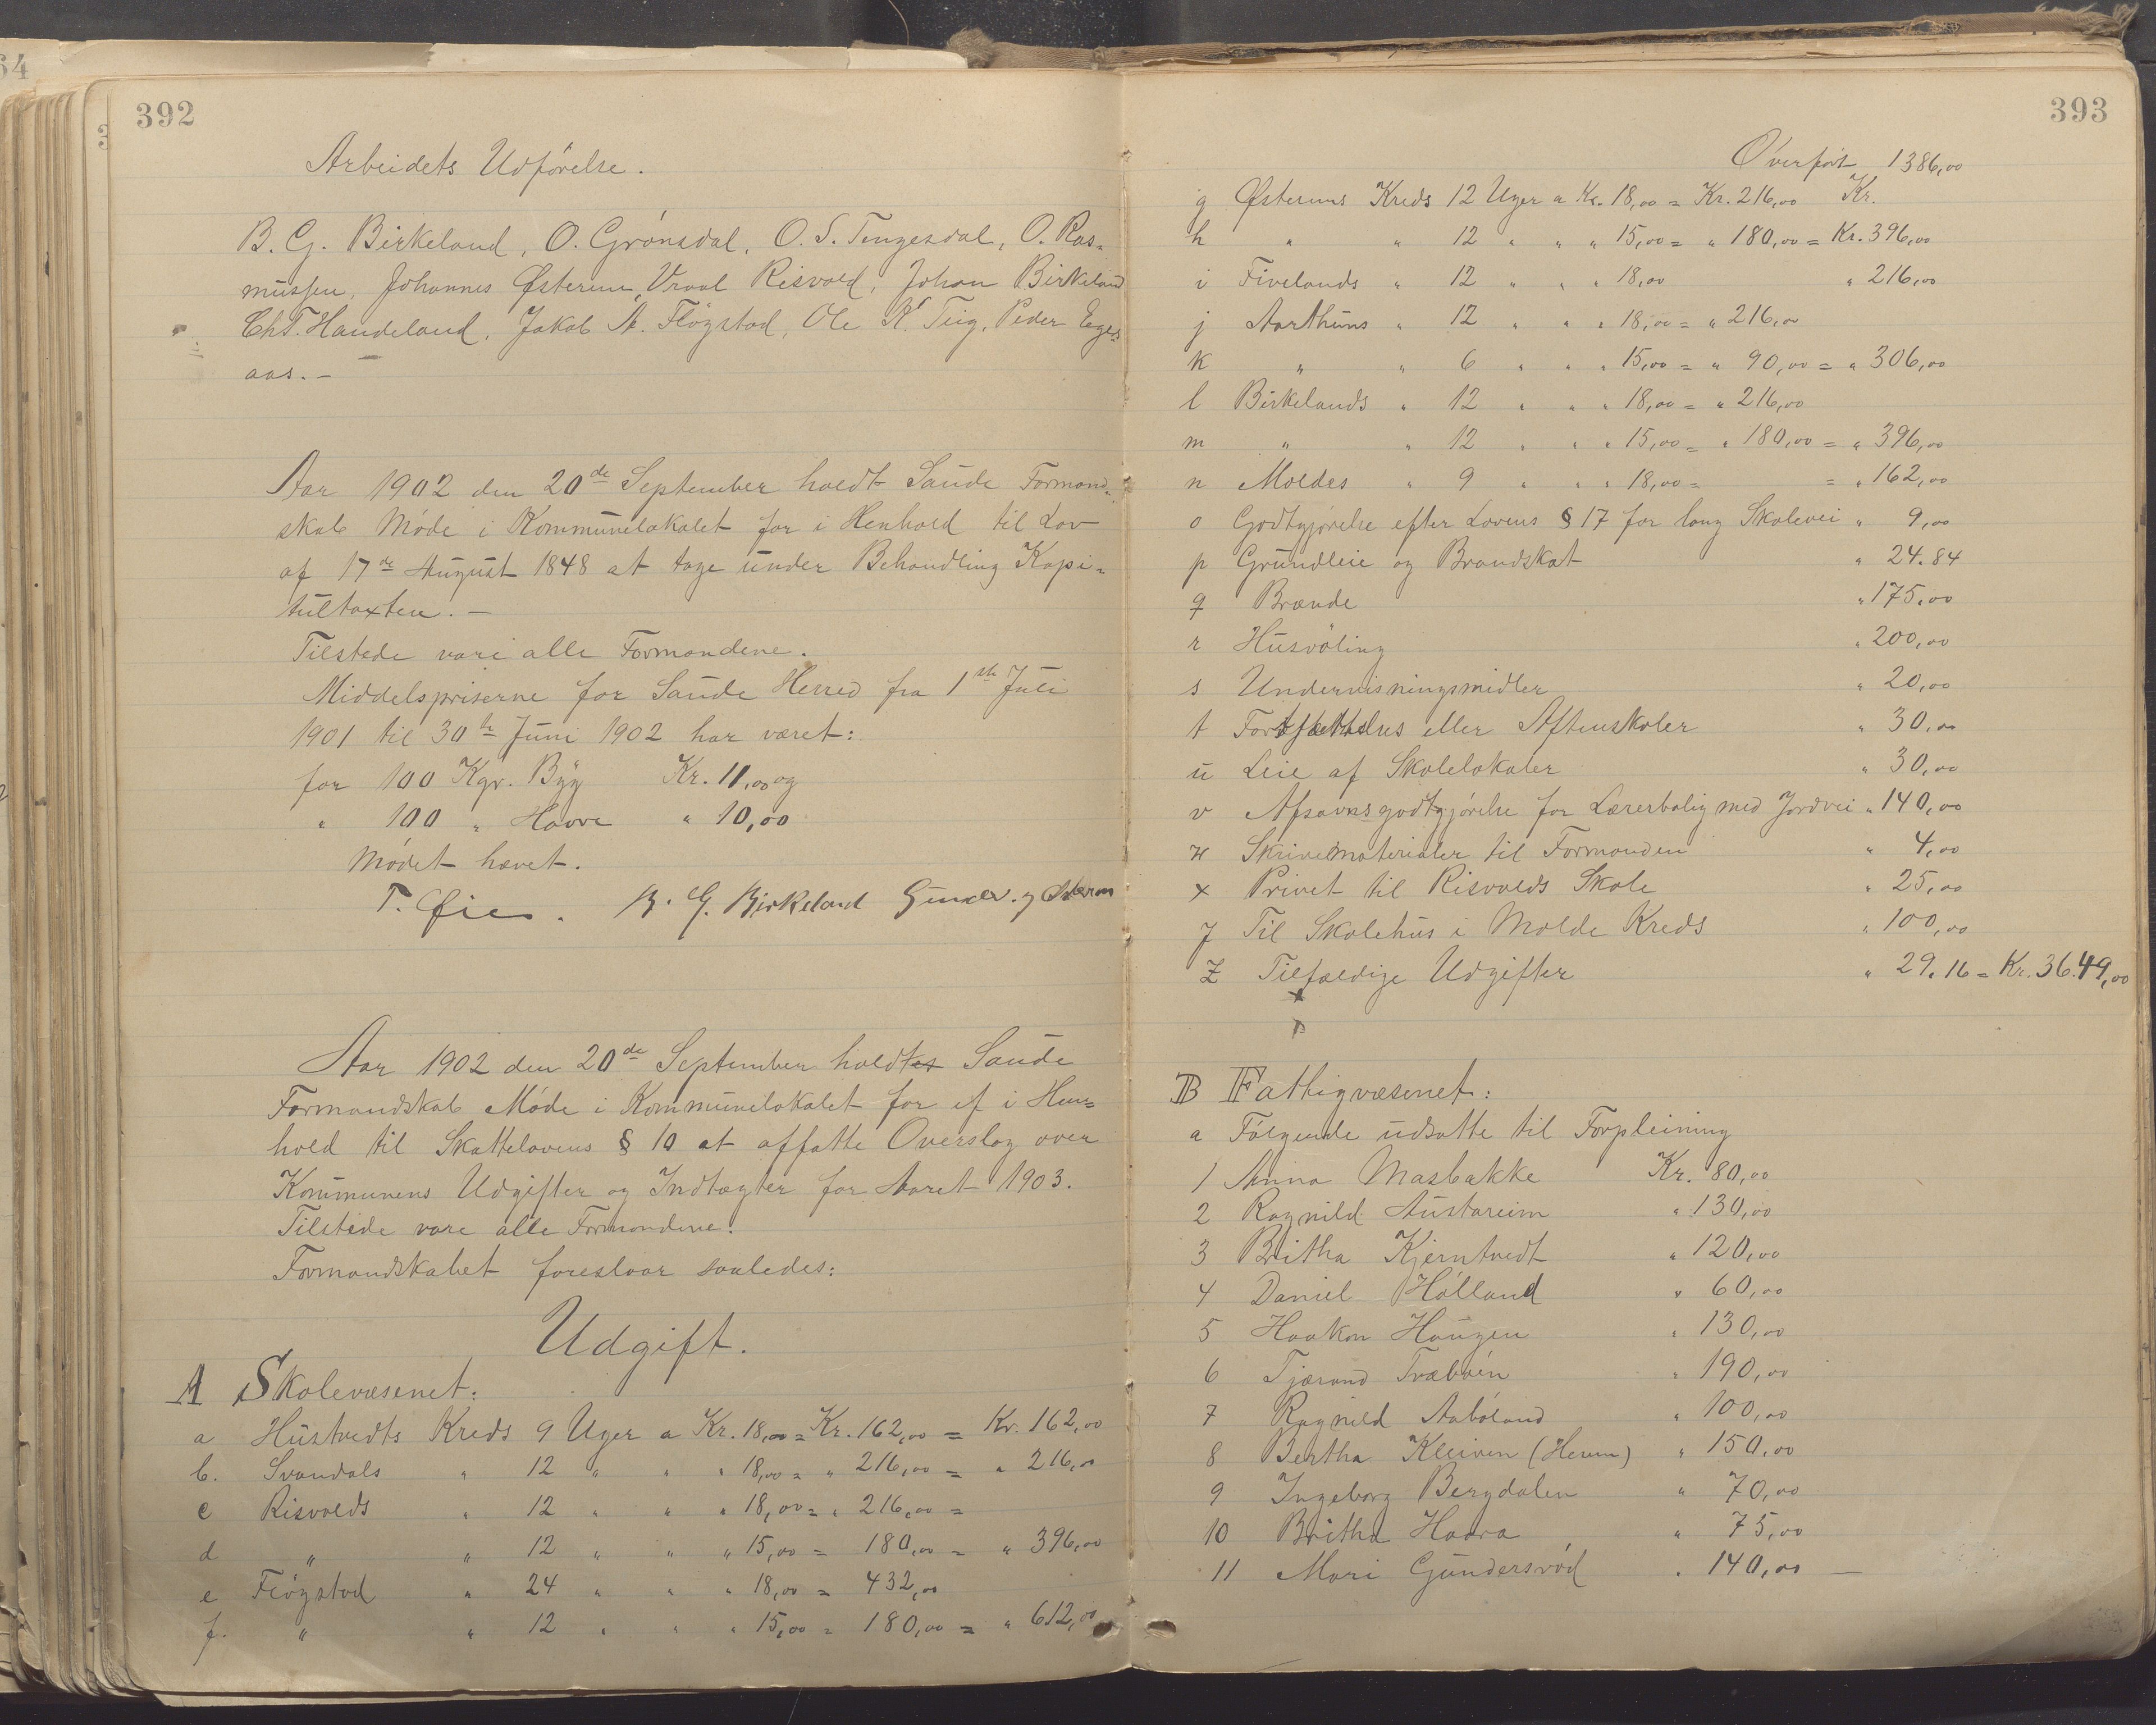 392
Arbeidets Udförelse.
B. G. Birkeland, O. Grónsdal, O. S. Tengesdal, O. Ras-
mussen, Johannes Østerum, Vraal Risvold, Johan Birkeland
Chr. T. Handeland, Jakob A. Flógstad, Ole K. Teig, Peder Eges-
aas.-
Aar 1902 den 20de September holdt Saude Formand-
skab Móde i Kommunelokalet for i Henhold til Lov
af 17de August 1848 at tage under Behandling Kapi-
tultaxten.-
Tilstede vare alle Formændene.
Middelspriserne for Saude Herred fra 1ste Juli
1901 til 30te Juni 1902 har været:
for 100 Kgr. Byg Kr. 11,00 og
" 100 " Havre " 10,00
Módet hævet.
T. Øie. B. G. Birkeland Gunder. J Østerum
Aar 1902 den 20de September holdtes Saude
Formandskab Móde i Kommunelokalet for ef i Hen-
hold til Skattelovens § 10 at affatte Overslag over
Kommunens Udgifter og Indtægter for Aaret 1903.
Tilstede vare alle Formændene.
Formandskabet foreslaar saaledes:
Udgift.
A Skolevæsenet:
a Hustvedts Kreds 9 Uger a Kr. 18,00 = Kr. 162,00 = Kr. 162,00
b. Svandals " 12 " " " 18,00 = " 216,00 = " 216,00
c Risvolds " 12 " " " 18,00 = " 216,00 =
d " " 12 " " " 15,00 = 180,00 = " 396,00
e Flógstad " 24 " " " 18,00 = 432,00
f. " " 12 " " " 15,00 = 180,00 = " 612,00
393
Overført 1386,00
g Østerums Kreds 12 Uger a Kr. 18,00 = Kr. 216,00 Kr.
h " " 12 " " " 15,00 = " 180,00 = Kr. 396,00
i Fivelands " 12 " " " 18,00 " 216,00
j Aarthuns " 12 " " " 18,00 = " 216,00
k " " 6 " " " 15,00 = " 90,00 = " 306,00
l Birkelands " 12 " " " 18,00 = " 216,00
m " " 12 " " " 15,00 = " 180,00 = " 396,00
n Moldes " 9 " " " 18,00 = = " 162,00
o Godtgjórelse efter Lovens § 17 for lang Skolevei " 9,00
p Grundleie og Brandskat " 24.84
q Brænde " 175,00
r Husvöling " 200,00
s Undervisningsmidler " 20,00
t Fortsættelses eller Aftenskoler " 30,00
u Leie af Skolelokaler " 30,00
v Afsavnsgodtgjórelse for Lærerbolig med Jordvei " 140,00
w Skrivematerialer til Formanden " 4,00
x Privet til Risvolds Skole " 25,00
y Til Skolehus i Molde Kreds " 100,00
Z Tilfældige Udgifter " 29.16 = Kr. 3649,00
B Fattigvæsenet:
a Fólgende udsatte til Forpleining
1 Anna Masbakke Kr. 80,00
2 Ragnild Austareim " 130,00
3 Britha Kjerntvedt " 120,00
4 Daniel Hólland " 60,00
5 Haakon Haugen " 130,00
6 Tjærand Træbóen " 190,00
7 Ragnild Aabóland " 100,00
8 Bertha Kleiven (Herum) " 150,00
9 Ingeborg Bergdalen " 70,00
10 Britha Haara " 75,00
11 Mari Gundersvód " 140,00 —